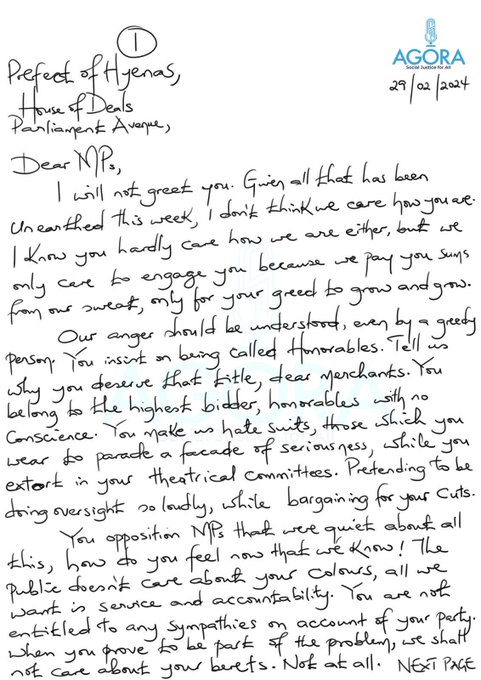 1
AGORA
Social Justice for All
29/02/2024
Prefect of Hyenas,
House of Deals
Parliament Avenue,
Dear MPs,
I will not greet you. Given all that has been
unearthed this week, I don't think we care how you are.
I know you hardly care how we are either, but we
only care to engage you because we pay you sums
from our sweat, only for your greed to grow and grow.
Our anger should be understood, even by a greedy
person. You insist on being called Honorables. Tell us
why you deserve that title, dear merchants. You
belong to the highest bidder, honorables with no
conscience. You make us hate suits, those which you
wear to parade a facade of seriousness, while you
extort in your theatrical committees. Pretending to be
doing oversight so loudly, while bargaining for your cuts.
You opposition MPs that were quiet about all
this, how do you feel now that we know! The
public doesn't care about your colours, all we
want is service and accountability. You are not
entitled to any sympathies on account of your party.
When you prove to be part of the problem, we shall
not care about your berets. Not at all. NEXT PAGE